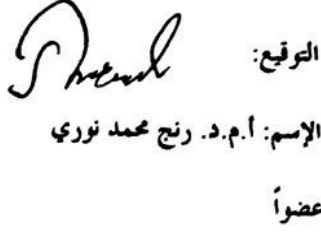 التوقيع:
الإسم: أ.م.د. رنج محمد نوري
عضواً